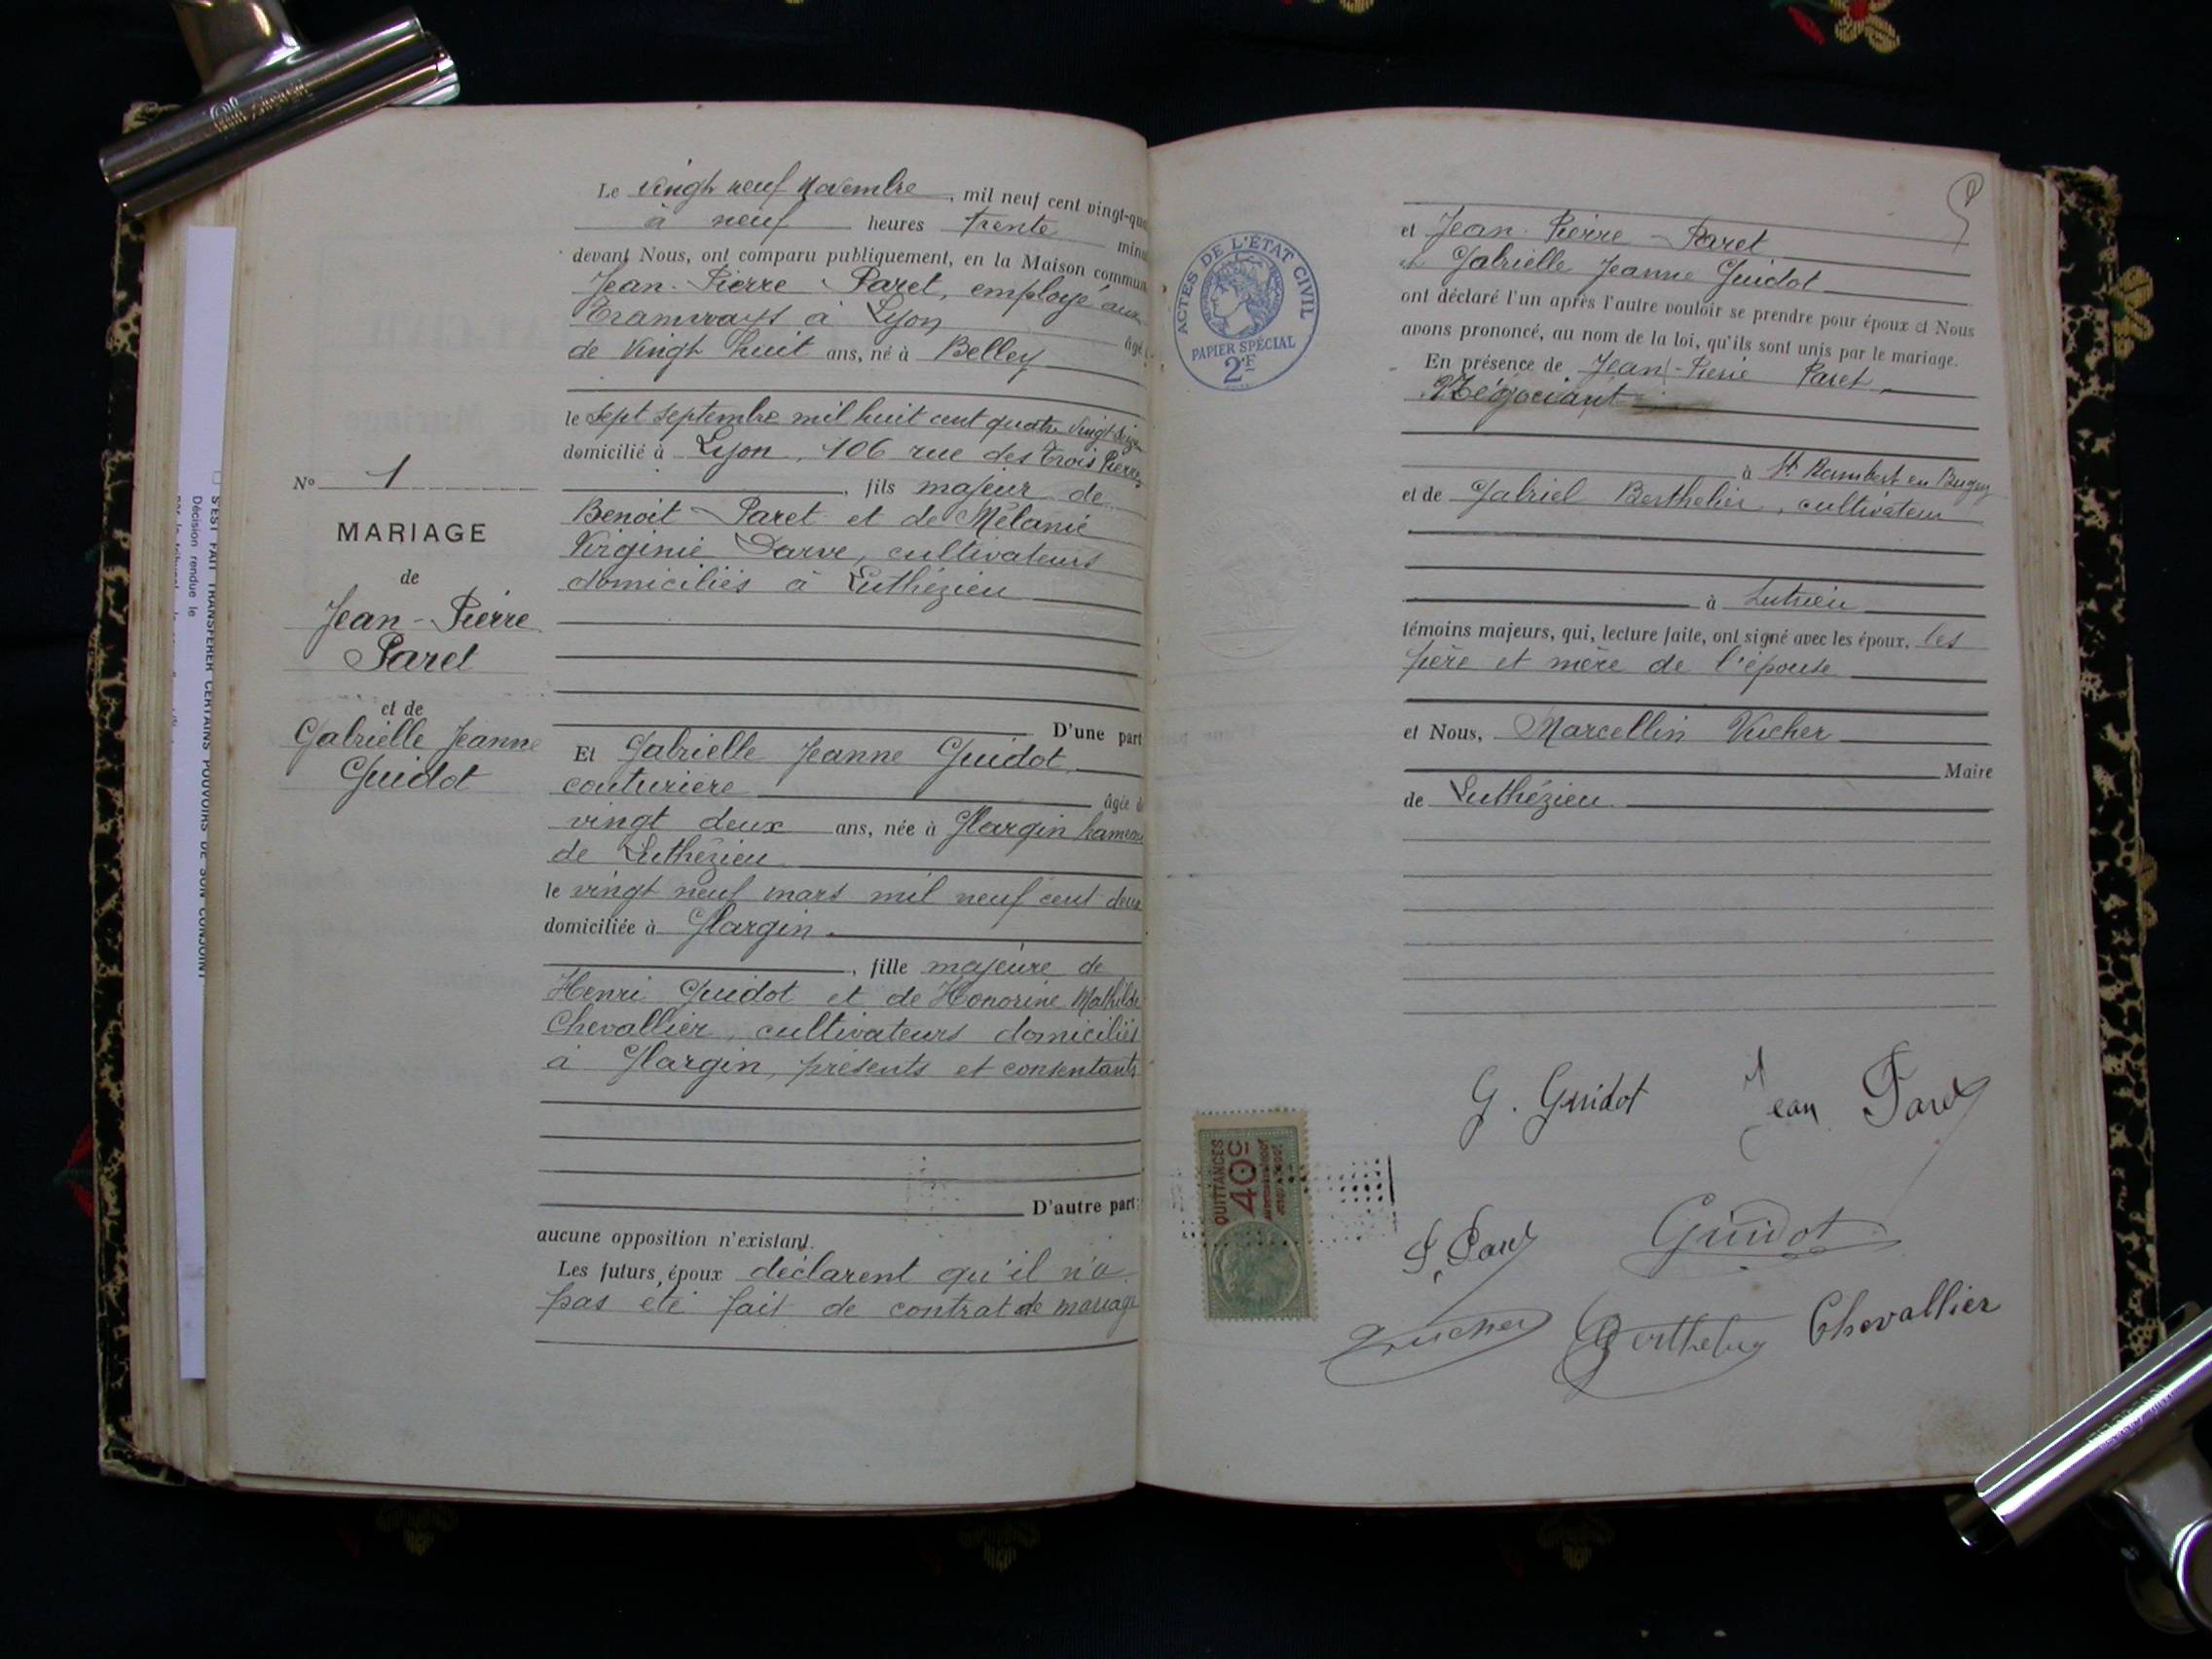 N° 1
MARIAGE
de
Jean-Pierre
Paret
et de
Gabrielle Jeanne
Guidot
Le vingt neuf Novembre, mil neuf cent vingt-qua
à neuf heures trente minu
devant Nous, ont comparu publiquement, en la Maison commun
Jean-Pierre Paret, employé aux
Tramways à Lyon âgé
de vingt huit ans, né à Belley
le sept septembre mil huit cent quatre vingt seize
domicilié à Lyon, 106 rue des Trois Pierres
, fils majeur de
Benoit Paret et de Mélanie
Virginie Darve, cultivateurs
domiciliés à Luthézieu
D'une part
Et Gabrielle Jeanne Guidot,
couturière âgée d
vingt deux ans, née à Glargin hameau
de Luthézieu
le vingt neuf mars mil neuf cent deux
domiciliée à Glargin.
, fille majeure de
Henri Guidot et de Honorine Mathilde
Chevallier, cultivateurs domiciliés
à Glargin, présents et consentants
D'autre part:
aucune opposition n'existant.
Les futurs époux déclarent qu'il n'a
pas été fait de contrat de mariage
S'EST FAIT TRANSFÉRER CERTAINS POUVOIRS DE SON CONJOINT
Décision rendue le
ACTES DE L'ÉTAT CIVIL
PAPIER SPÉCIAL
2F
et Jean-Pierre Paret
et Gabrielle Jeanne Guidot
ont déclaré l'un après l'autre vouloir se prendre pour époux et Nous
avons prononcé, au nom de la loi, qu'ils sont unis par le mariage.
En présence de Jean-Pierre Paret,
Négociant
à St Rambert en Bugey
et de Gabriel Berthelier, cultivateur
à Lutrieu
témoins majeurs, qui, lecture faite, ont signé avec les époux, les
père et mère de l'épouse
et Nous, Marcellin Vucher
Maire
de Luthézieu
G. Guidot Jean Paret
QUITTANCES
40c
Paret Guidot
Vucher Berthelier Chevallier